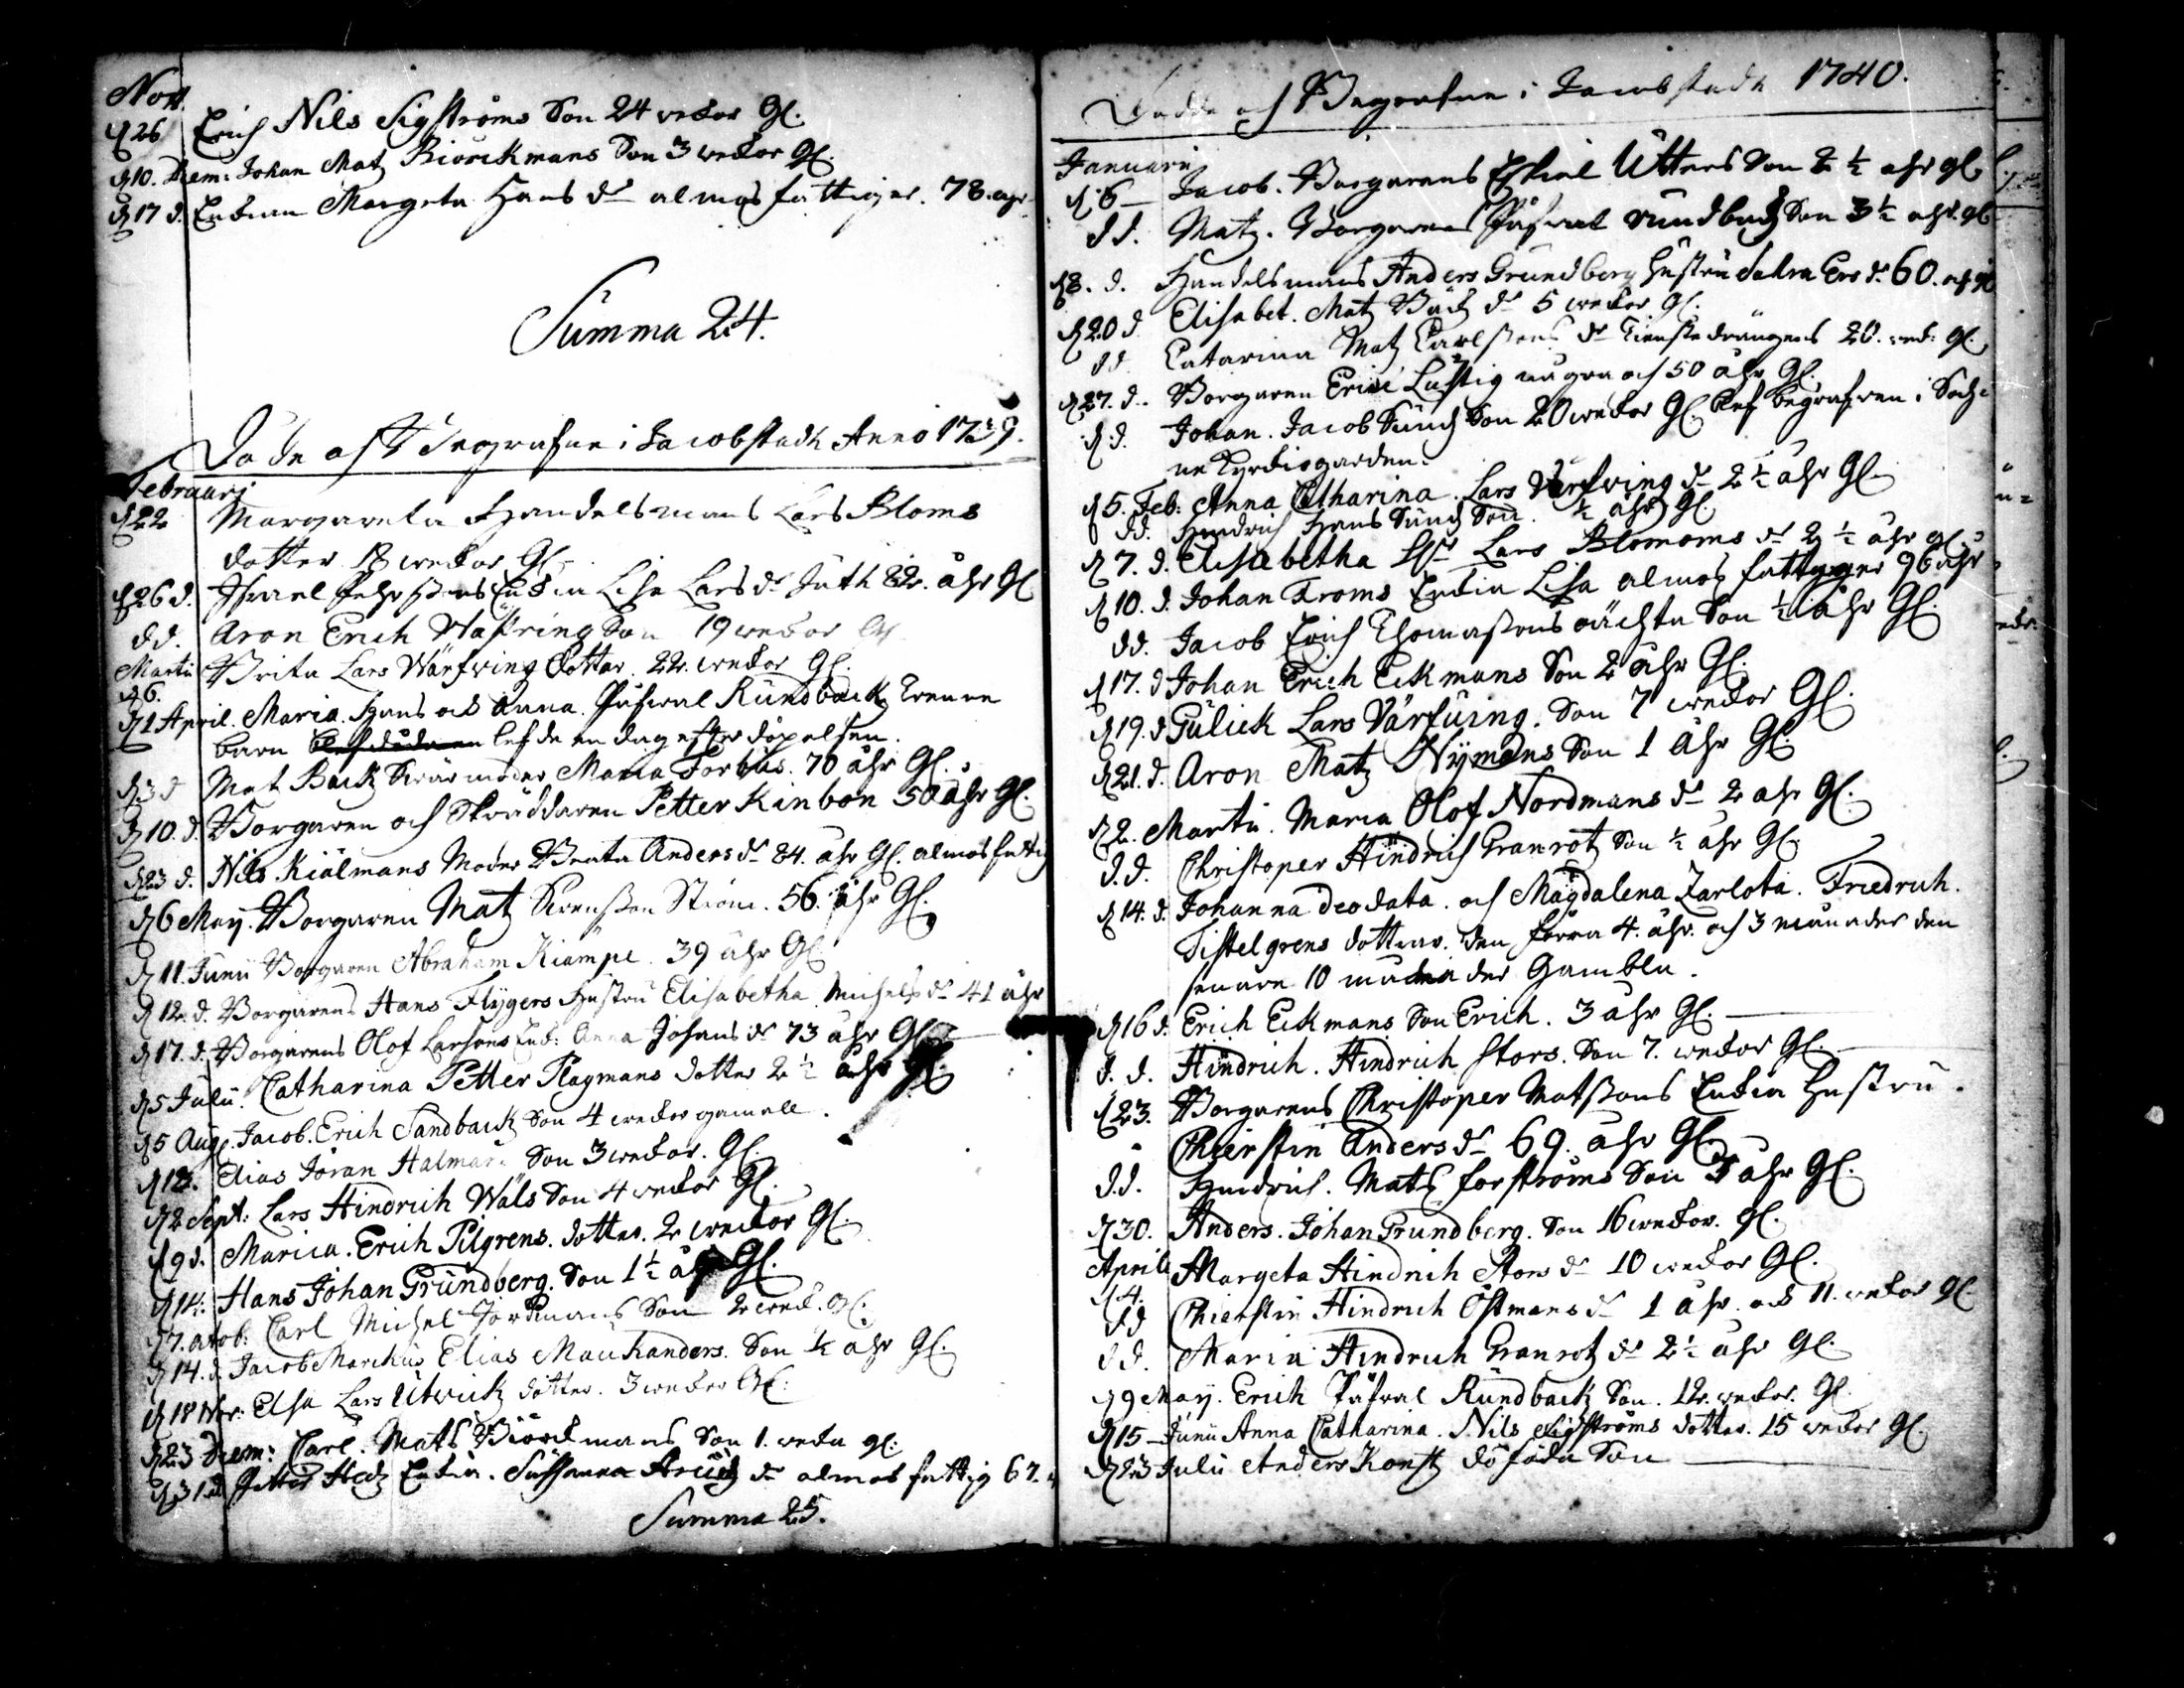 Nov.
d 26 Erich Nils Sigströms Son 24 wekor Gl.
d 10. Decem: Johan Matz Biörckmans Son 3 wekor Gl.
d 17 d. Enkian Margeta Hans dr almosfattiger. 78. ahr
Summa 24.
Döde och Begrafne i Jacobstadh Anno 1739.
Februarj
d 22 Margareta Handelsmans Lars Bloms
dotter 18 wekor Gl.
d 26 d. Israel Pehrssons Enkia Lisa Lars dr Juth 82. åhr Gl
d d. Aron Erich Wäfwing Son 19 wekor Gl
Martii Brita Lars Wärfwing dotter 22. wekor Gl.
d 6.
d 1 April. Maria. Hans och Anna. Påfwal Rundback
barn lefde en dag efter döpelsen.
d 3 d Mat Back Swärmoder Maria Forbus. 70 åhr Gl.
d 10. d. Borgaren och Skräddaren Petter Kinbon 50 åhr Gl.
d 23 d. Nils Kiälmans Moder Beata Anders dr 84. åhr Gl. almosfattig
d 6 May. Borgaren Matz Swensson Ström. 56. åhr Gl.
d 11. Junii Borgaren Abraham Kiämpe. 39 åhr Gl
d 12. d. Borgarens Hans Flygers Hustru Elisabetha Michels dr 41 åhr
d 17. d. Borgarens Olof Larsons Enk: Anna Johans dr 73 åhr Gl
d 5 Julii. Catharina Petter Plagmans dotter 2 ½ åhr Gl
d 5 Aug. Jacob. Erich Sandback Son 4 wekor gamall.
d 12. Elias Jöran Halmar Son 3 wekor. Gl.
d 2 Sept: Lars Hindrich Wäls Son 4 wekor Gl.
d 9 d. Maria. Erich Pilgrens. dotter. 2 wekor Gl.
d 14. Hans Johan Grundberg. Son 1 ½ åhr Gl.
d 7. octob: Carl Michel Son 2 wek. Gl.
d 14. d. Jacob Marckus Elias Mauhanders. Son ½ åhr Gl.
d 18 Nov: Elsa Lars Utwick dotter. 3 wekor Gl:
d 23 Decem: Carl. Mats Biörckmans Son 1. weka gl.
d 31 d Petter Enkia. Susanna dr almosfattig 67.
Summa 25.
Döde och Begrafne i Jacobstadh 1740.
Januarii
d 6 Jacob. Borgarens Eskiel Utters Son 2 ½ ahr gl.
d d. Matz. Borgarens Påfwal Rundback Son 3 ½ ahr. gl
d 8. d. Handelsmans Anders Grundberg Hustru 60. åhr
d 20 d Elisabet. Matz Back dr 5 wekor Gl.
d d Catarina Matz Carlssons dr Tienstedrängens 20. wek: gl.
d 27. d. Borgaren Eric Lustig några och 50 åhr Gl.
d d. Johan. Jacob Sund Son 20 wekor Gl. blef begrafwen i
ne Kyrkiogården.
d 5. Feb: Anna Catharina. Lars Wärfwing dr 2 ½ åhr Gl.
d d. Hindrich Hans Sund Son. ½ åhr Gl.
d 7. d. Elisabetha Lars dr 2 ½ åhr gl.
d 10. d. Johan Froms Enkia Lisa almos fattyger 96 åhr
d d. Jacob Erich Thomassons oächta Son ½ åhr Gl.
d 17. d Johan Erich Eckmans Son 2 åhr Gl.
d 19. d Gulick Lars Värfwing. Son 7 wekor Gl.
d 21. d. Aron Matz Nymans Son 1 åhr Gl.
d 2. Martii. Maria Olof Nordmans dr 2 ahr Gl.
d. d. Christoper Hindrich Granrot Son ½ åhr Gl.
d 14. d. Johanna deodata. och Magdalena Zarlota. Friedrich.
Tistelgrens dottrar. den förra 4. åhr. och 3 månader den
senare 10 månader Gambla.
d 16 d. Erich Eckmans Son Erich. 3 åhr Gl.
d. d. Hindrich. Hindrich Stors. Son 7. wekor Gl.
d 23. Borgarens Christoper Matssons Enkia Hustru.
Chierstin Anders dr 69. åhr Gl.
d. d. Hindrich. Mats forströms Son åhr Gl.
d 30. Anders. Johan Grundberg. Son 16 wekor. Gl.
Aprill Margeta Hindrich Stors dr 10 wekor Gl.
d 4.
d d Chierstin Hindrich Östmans dr 1 åhr. och 11. wekor gl.
d d. Maria Hindrich Granrot dr 2 ½ åhr Gl.
d 9 May. Erich Påfwal Rundback Son. 12. wekor. Gl.
d 15 Junii Anna Catharina. Nils Sigströms dotter. 15 wekor Gl.
d 23 Julii Anders Konst döföda Son